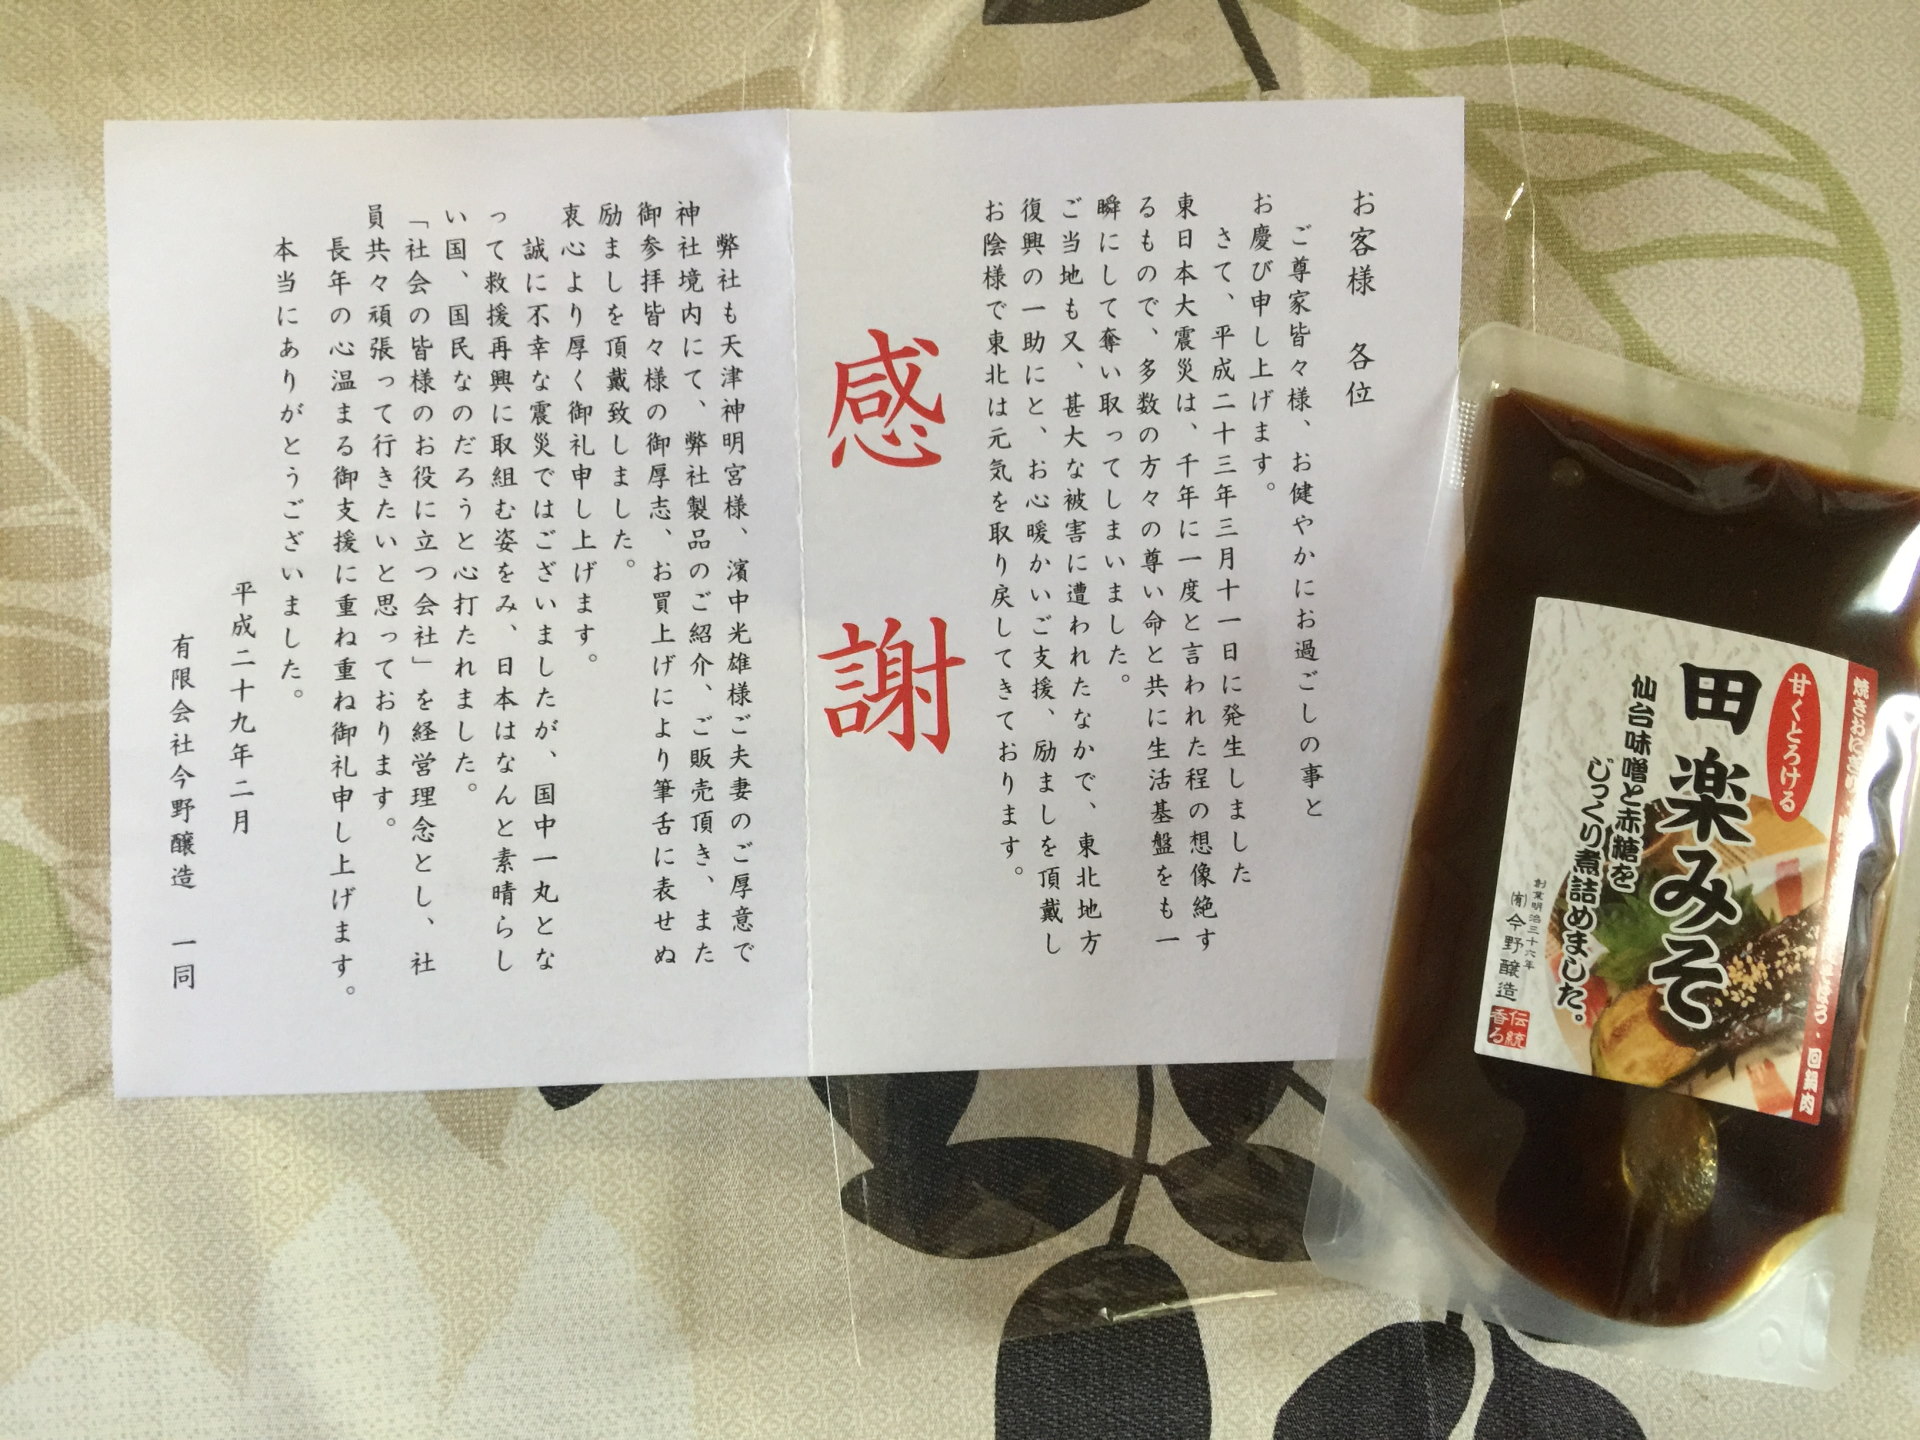 お客様 各位
ご尊家皆々様、お健やかにお過ごしの事と
お慶び申し上げます。
さて、平成二十三年三月十一日に発生しました
東日本大震災は、千年に一度と言われた程の想像絶す
るもので、多数の方々の尊い命と共に生活基盤をも一
瞬にして奪い取ってしまいました。
ご当地も又、甚大な被害に遭われたなかで、東北地方
復興の一助にと、お心暖かいご支援、励ましを頂戴し
お陰様で東北は元気を取り戻してきております。
感謝
弊社も天津神明宮様、濱中光雄様ご夫妻のご厚意で
神社境内にて、弊社製品のご紹介、ご販売頂き、また
御参拝皆々様の御厚志、お買上げにより筆舌に表せぬ
励ましを頂戴致しました。
衷心より厚く御礼申し上げます。
誠に不幸な震災ではございましたが、国中一丸とな
って救援再興に取組む姿をみ、日本はなんと素晴らし
い国、国民なのだろうと心打たれました。
「社会の皆様のお役に立つ会社」を経営理念とし、社
員共々頑張って行きたいと思っております。
長年の心温まる御支援に重ね重ね御礼申し上げます。
本当にありがとうございました。
平成二十九年二月
有限会社今野醸造 一同
焼きおに
回鍋肉
甘くとろける
田楽みそ
仙台味噌と赤糖を
じっくり煮詰めました。
創業明治三十六年
㈲今野醸造
伝統
香る